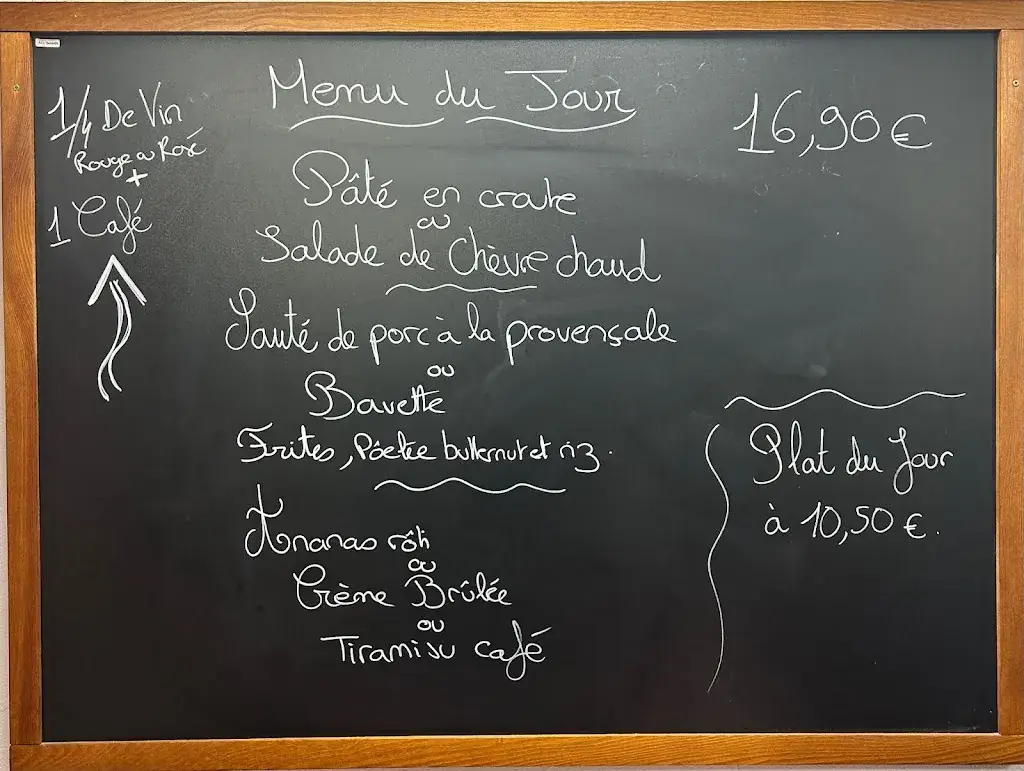 Menu du Jour
16,90€
1/4 De Vin
Rouge ou Rosé
+
1 Café
Pâté en croute
ou
Salade de Chèvre chaud
Sauté de porc à la provençale
ou
Bavette
Frites, Poêlée butternut et riz.
Ananas rôti
ou
Crème Brûlée
ou
Tiramisu café
Plat du Jour
à 10,50 €.